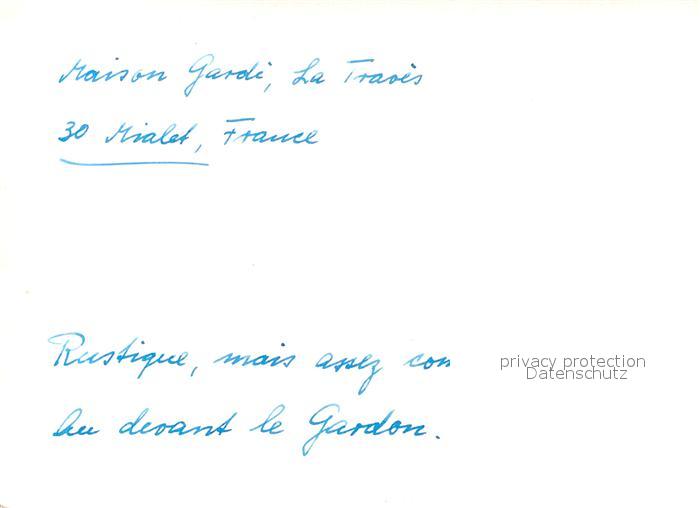 Maison Gardi, La Travès
30 Mialet, France
Rustique, mais assez con
privacy protection
Datenschutz
devant le Gardon.